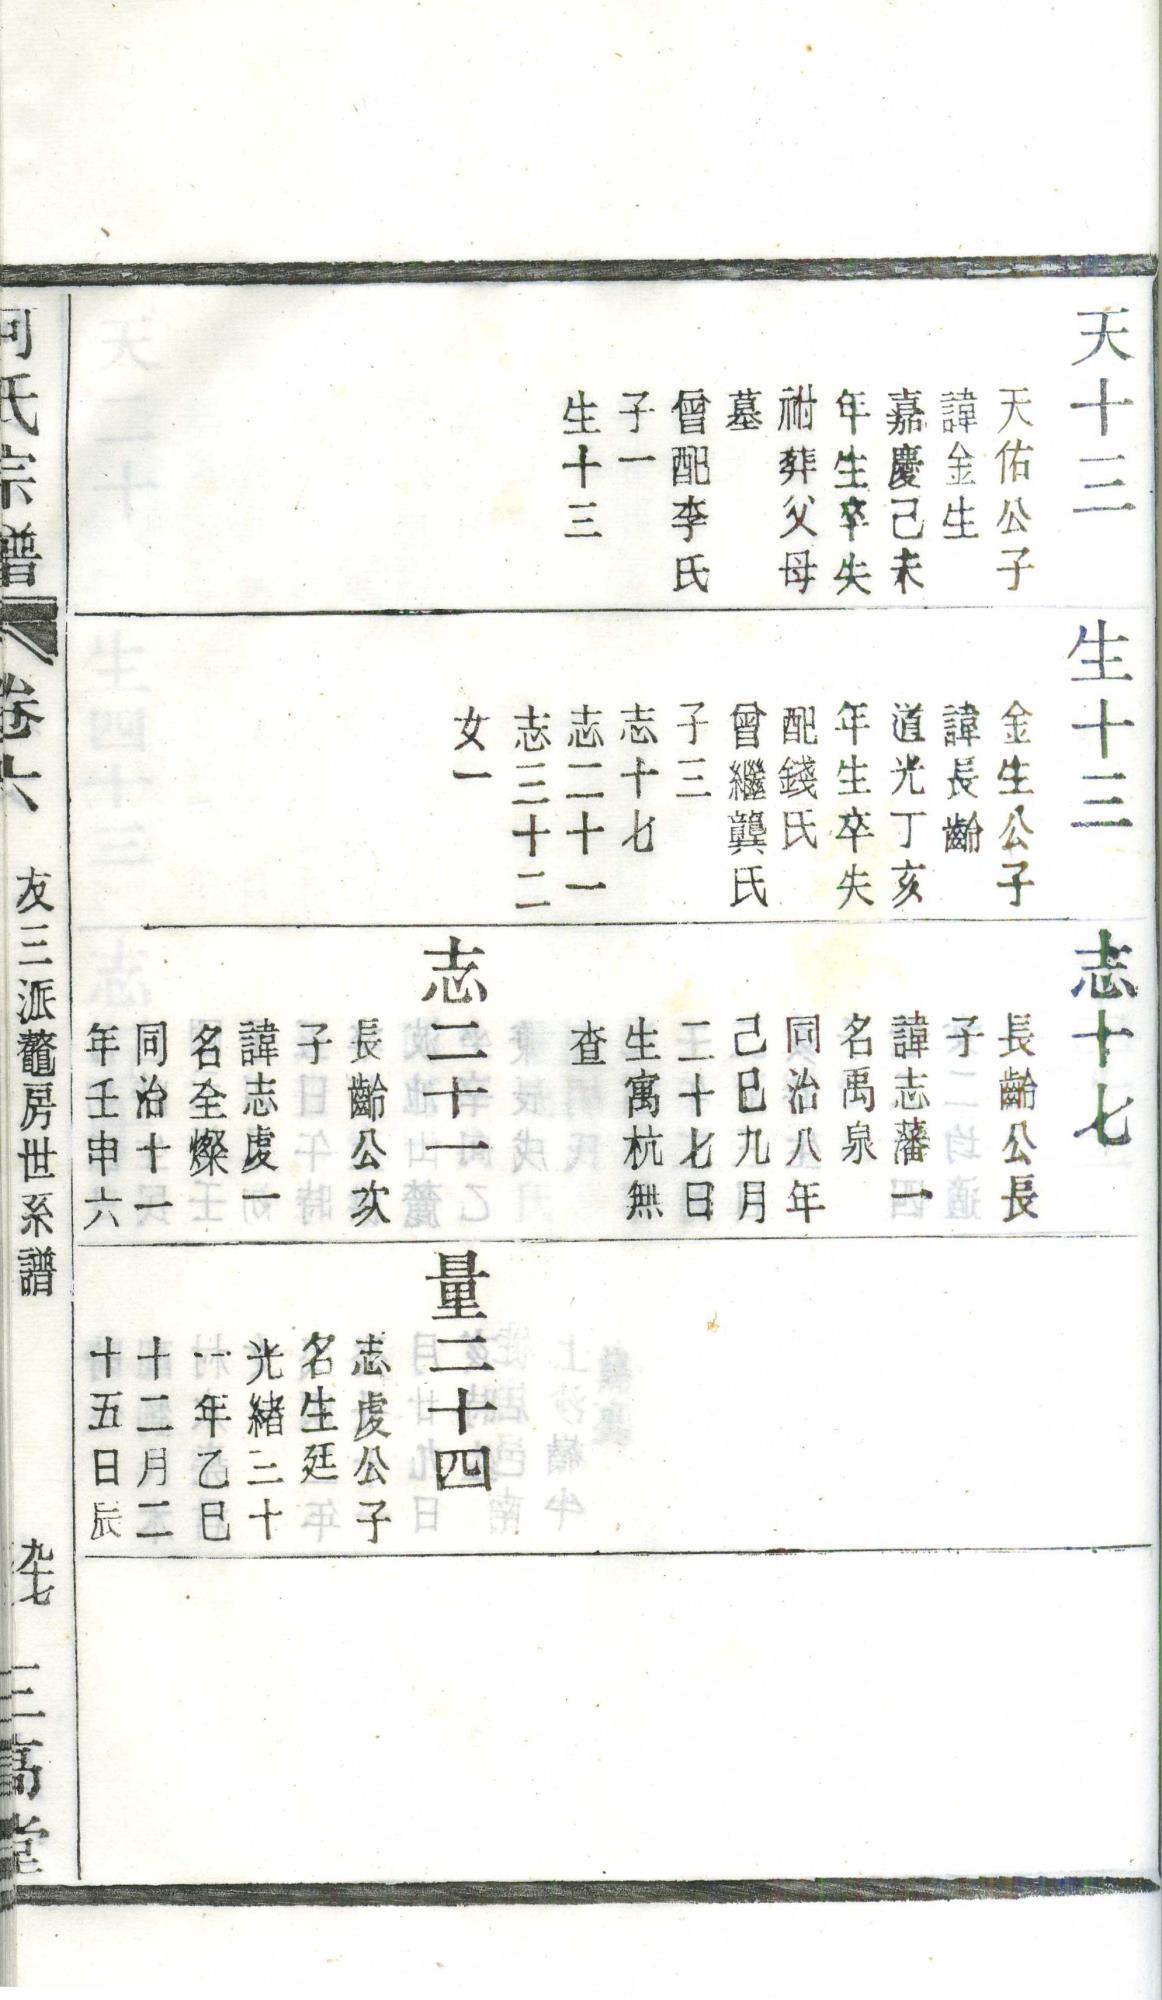 天十三
天佑公子
諱金生
嘉慶己未
年生卒失
祔葬父母
墓
曾配李氏
子一
生十三
生十三
金生公子
諱長齡
道光丁亥
年生卒失
配錢氏
曾繼龔氏
子三
志十七
志二十一
志三十二
女一
志十七
長齡公長
子
諱志藩一
名禹泉
同治八年
己巳九月
二十七日
生寓杭無
查
志二十一
長齡公次
子
諱志虔一
名全燦
同治十一
年壬申六
量三十四
志虔公子
名生廷
光緒三十
一年乙巳
十二月二
十五日辰
何氏宗譜
卷六
友三派鼇房世系譜
九十七
三高堂